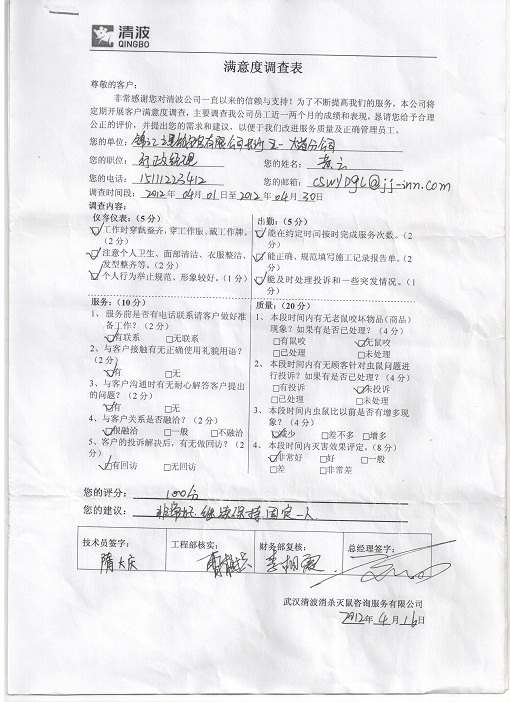 清波
QINGBO
满意度调查表
尊敬的客户：
非常感谢您对清波公司一直以来的信赖与支持！为了不断提高我们的服务，本公司将
定期开展客户满意度调查，主要调查我公司员工近一两个月的成绩和表现，恳请您给予合理
公正的评价，并提出您的需求和建议，以便于我们改进服务质量及正确管理员工。
您的单位：
您的职位：行政经理 您的姓名：
您的电话：15111223412 您的邮箱：CSWYDGL@jj-inn.com
调查时间段：2012年04月01日至2012年04月30日
调查内容：
仪容仪表：（5分） 出勤：（5分）
☑工作时穿戴整齐，穿工作服、戴工作牌。（2分）
☑注意个人卫生、面部清洁、衣服整洁、发型整齐等。（2分）
☑个人行为举止规范、形象较好。（1分）
☑能在约定时间按时完成服务次数。（2分）
☑能正确、规范填写施工记录报告单。（2分）
☑能及时处理投诉和一些突发情况。（1分）
服务：（10分）
1、服务前是否有电话联系请客户做好准
备工作？（2分）
☑有联系 □无联系
2、与客户接触有无正确使用礼貌用语？
（2分）
☑有 □无
3、与客户沟通时有无耐心解答客户提出
的问题？（2分）
☑有 □无
4、与客户关系是否融洽？（2分）
☑很融洽 □一般 □不融洽
5、客户的投诉解决后，有无做回访？（2
分）
☑有回访 □无回访
质量：（20分）
1、本段时间内有无老鼠咬坏物品（商品）
现象？如果有是否已处理？（4分）
□有鼠咬 ☑无鼠咬
□已处理 □未处理
2、本段时间内有无顾客针对虫鼠问题进
行投诉？如果有是否已处理？（4分）
□有投诉 ☑未投诉
□已处理 □未处理
3、本段时间内虫鼠比以前是否有增多现
象？（4分）
☑减少 □差不多 □增多
4、本段时间内灭害效果评定。（8分）
☑非常好 □好 □一般
□差 □非常差
您的评分：100分
您的建议：非常好，继续保持固定一人.
技术员签字： 工程部核实： 财务部复核： 总经理签字：
隋大庆
武汉清波消杀灭鼠咨询服务有限公司
2012年4月16日